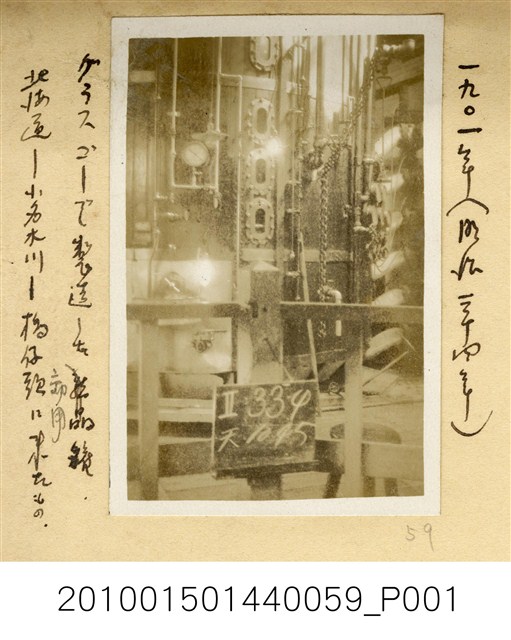 一九〇一年(明治三十四年)
グラスゴーで製造した結晶罐.
北海道ー小名木川ー橋仔頭に来たもの.
Ⅱ 334
59
201001501440059_P001